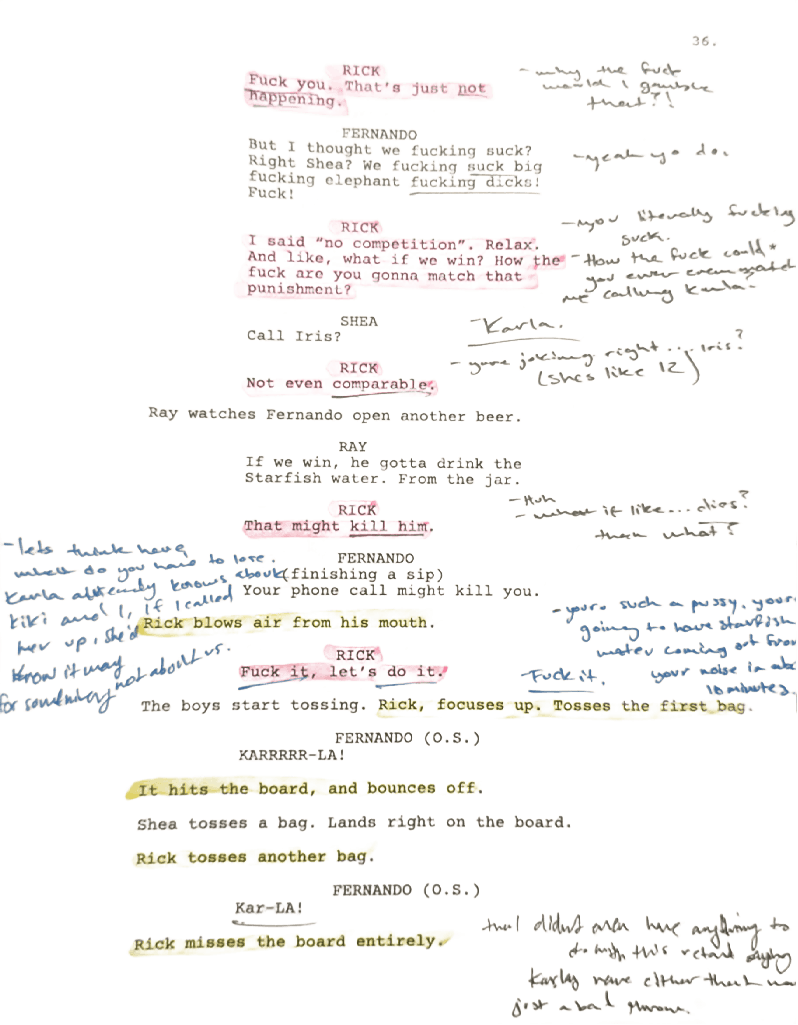 36.
RICK
Fuck you. That's just not
happening.
- why the fuck
would I gamble
that?!
FERNANDO
But I thought we fucking suck?
Right Shea? We fucking suck big
fucking elephant fucking dicks!
Fuck!
- yeah yo do.
RICK
I said "no competition". Relax.
And like, what if we win? How the
fuck are you gonna match that
punishment?
- you literally fucking
suck.
- How the fuck could
you ever even match
me calling Karla?
SHEA
Call Iris?
- Karla.
RICK
Not even comparable.
- youre joking right... Iris?
(shes like 12)
Ray watches Fernando open another beer.
RAY
If we win, he gotta drink the
Starfish water. From the jar.
RICK
That might kill him.
- Huh
- what if like... dies?
then what?
FERNANDO
(finishing a sip)
Your phone call might kill you.
- lets think here,
what do you have to lose.
Karla already knows about
Kiki and I, if I called
her up, she'd
know it may
for something not about us.
Rick blows air from his mouth.
- youre such a pussy, your
going to have starfish
water coming out from
your noise in
10 minutes.
RICK
Fuck it, let's do it.
- Fuck it.
The boys start tossing. Rick, focuses up. Tosses the first bag.
FERNANDO (O.S.)
KARRRRR-LA!
It hits the board, and bounces off.
Shea tosses a bag. Lands right on the board.
Rick tosses another bag.
FERNANDO (O.S.)
Kar-LA!
Rick misses the board entirely.
that didnt even have anything to
do with this retard saying
Karlas name either that was
just a bad